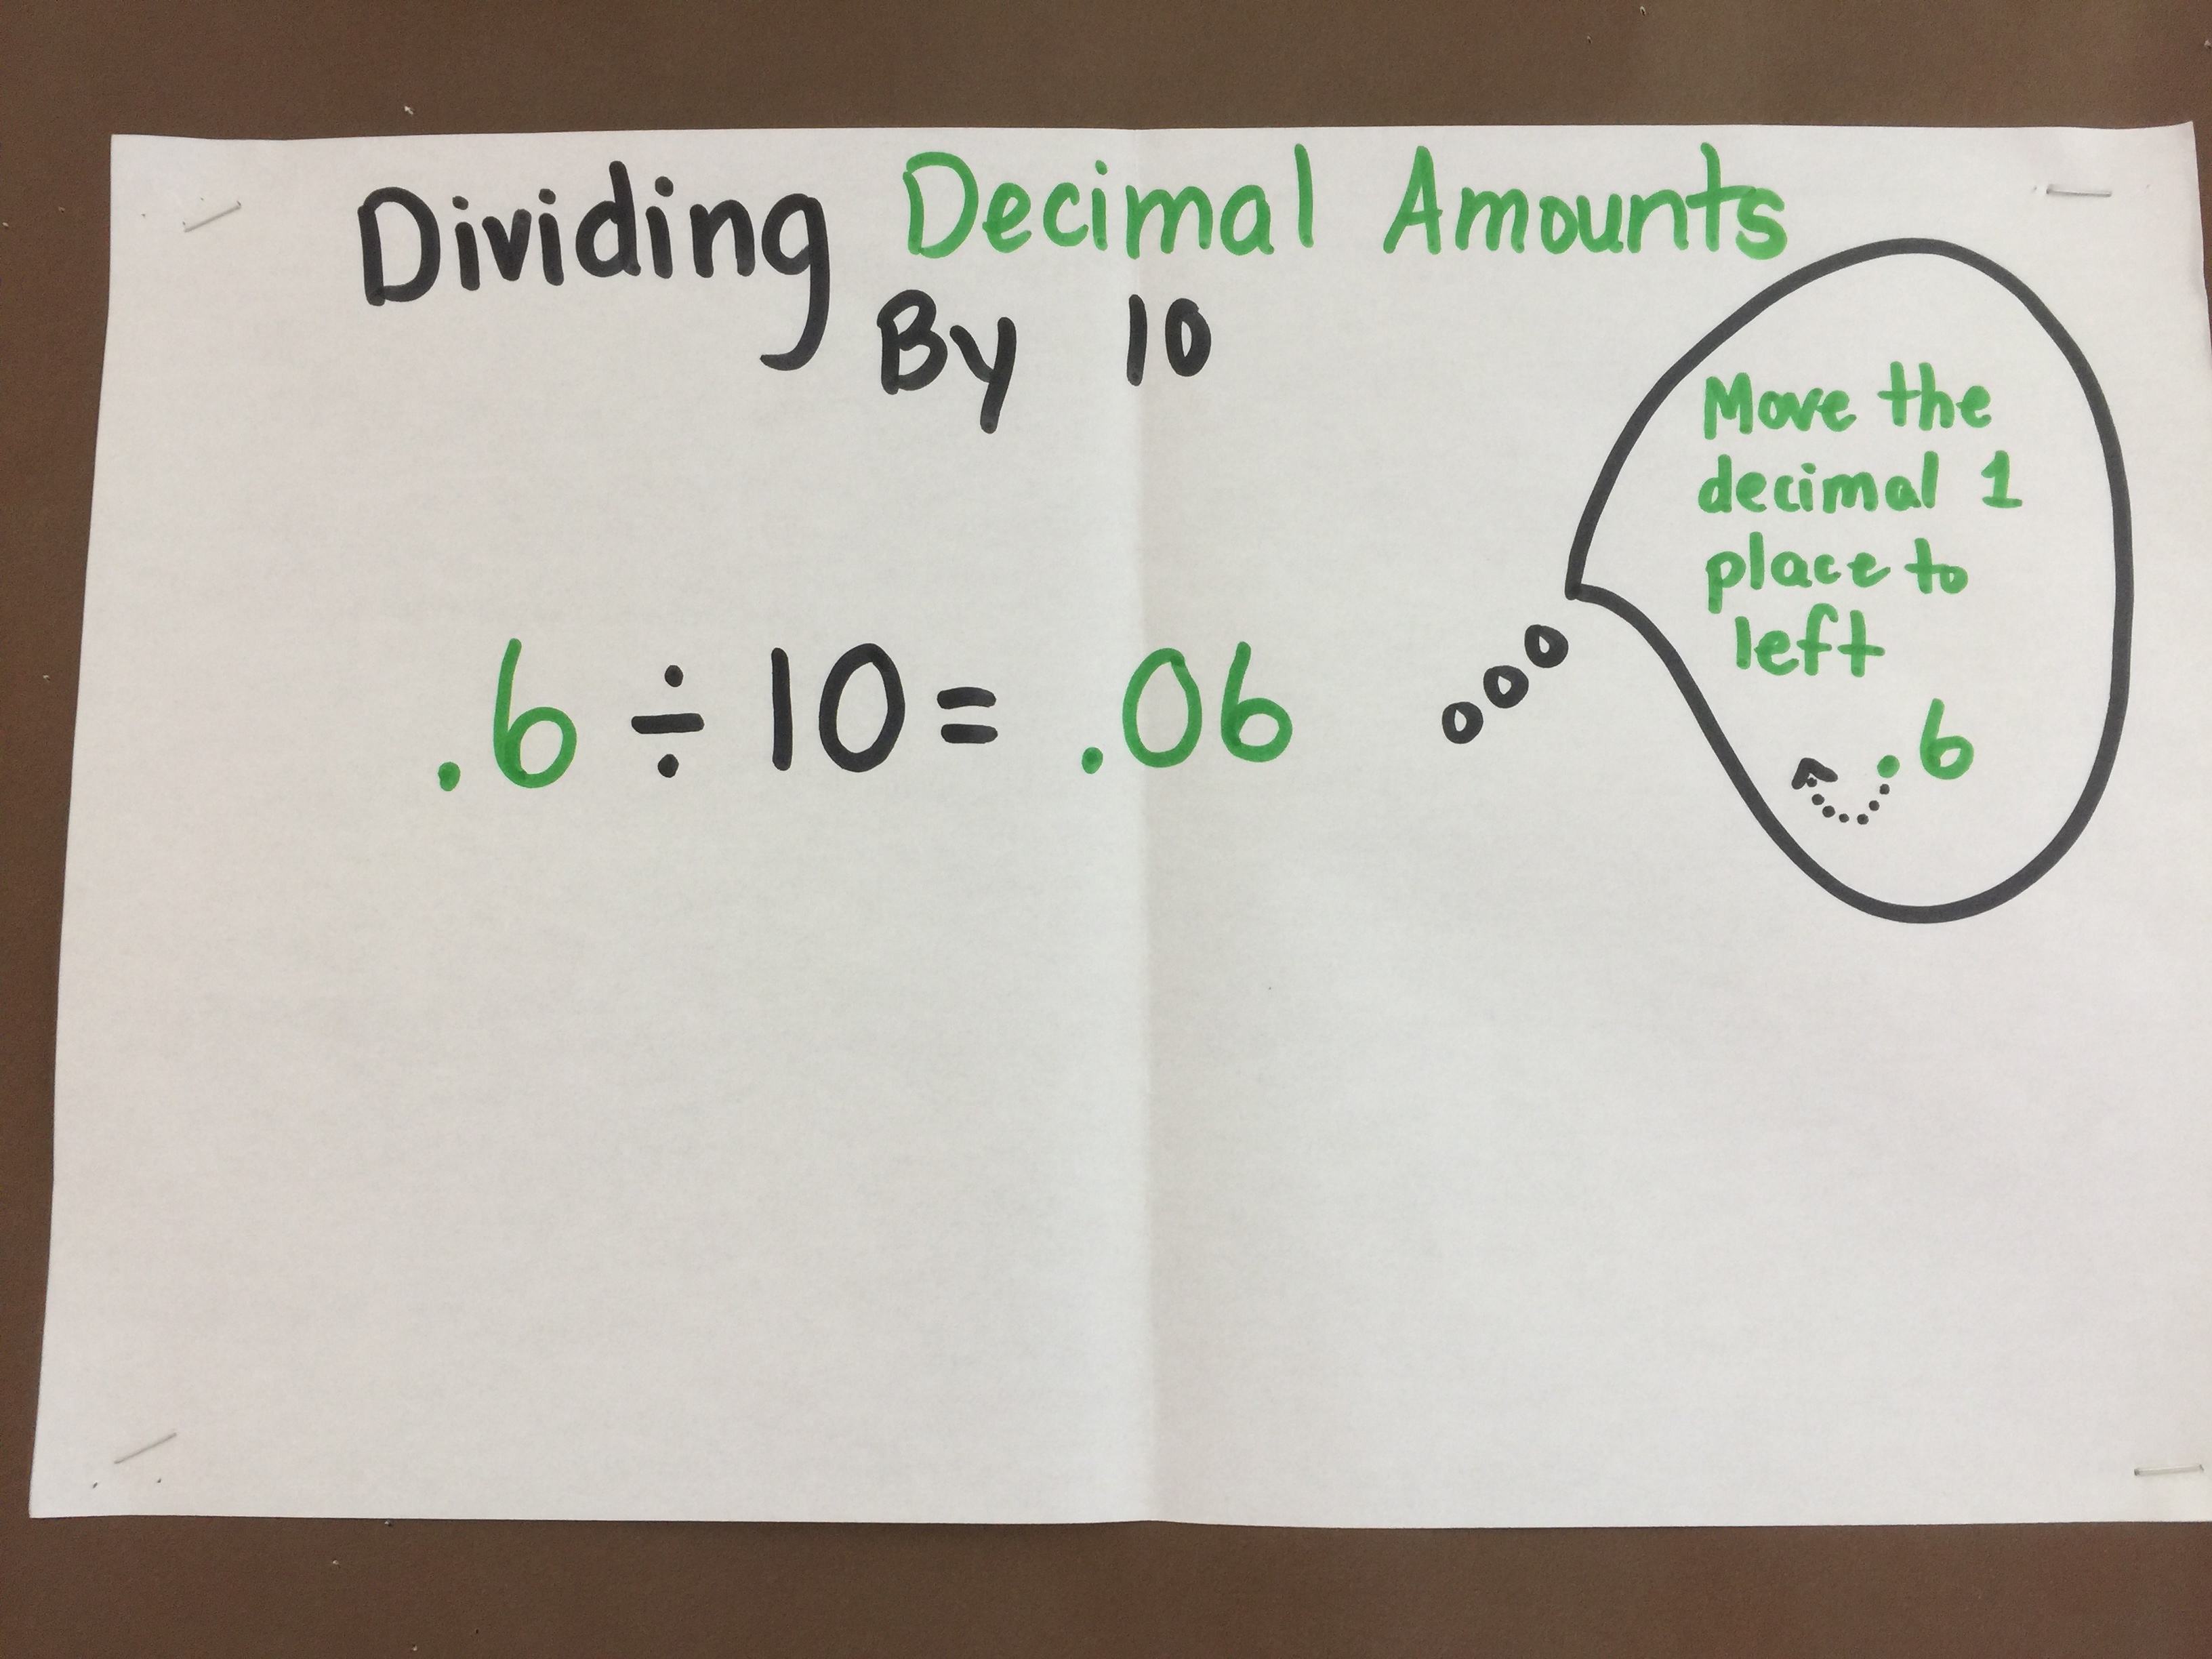 Dividing Decimal Amounts
By 10
.6 ÷ 10 = .06
Move the
decimal 1
place to
left
.6